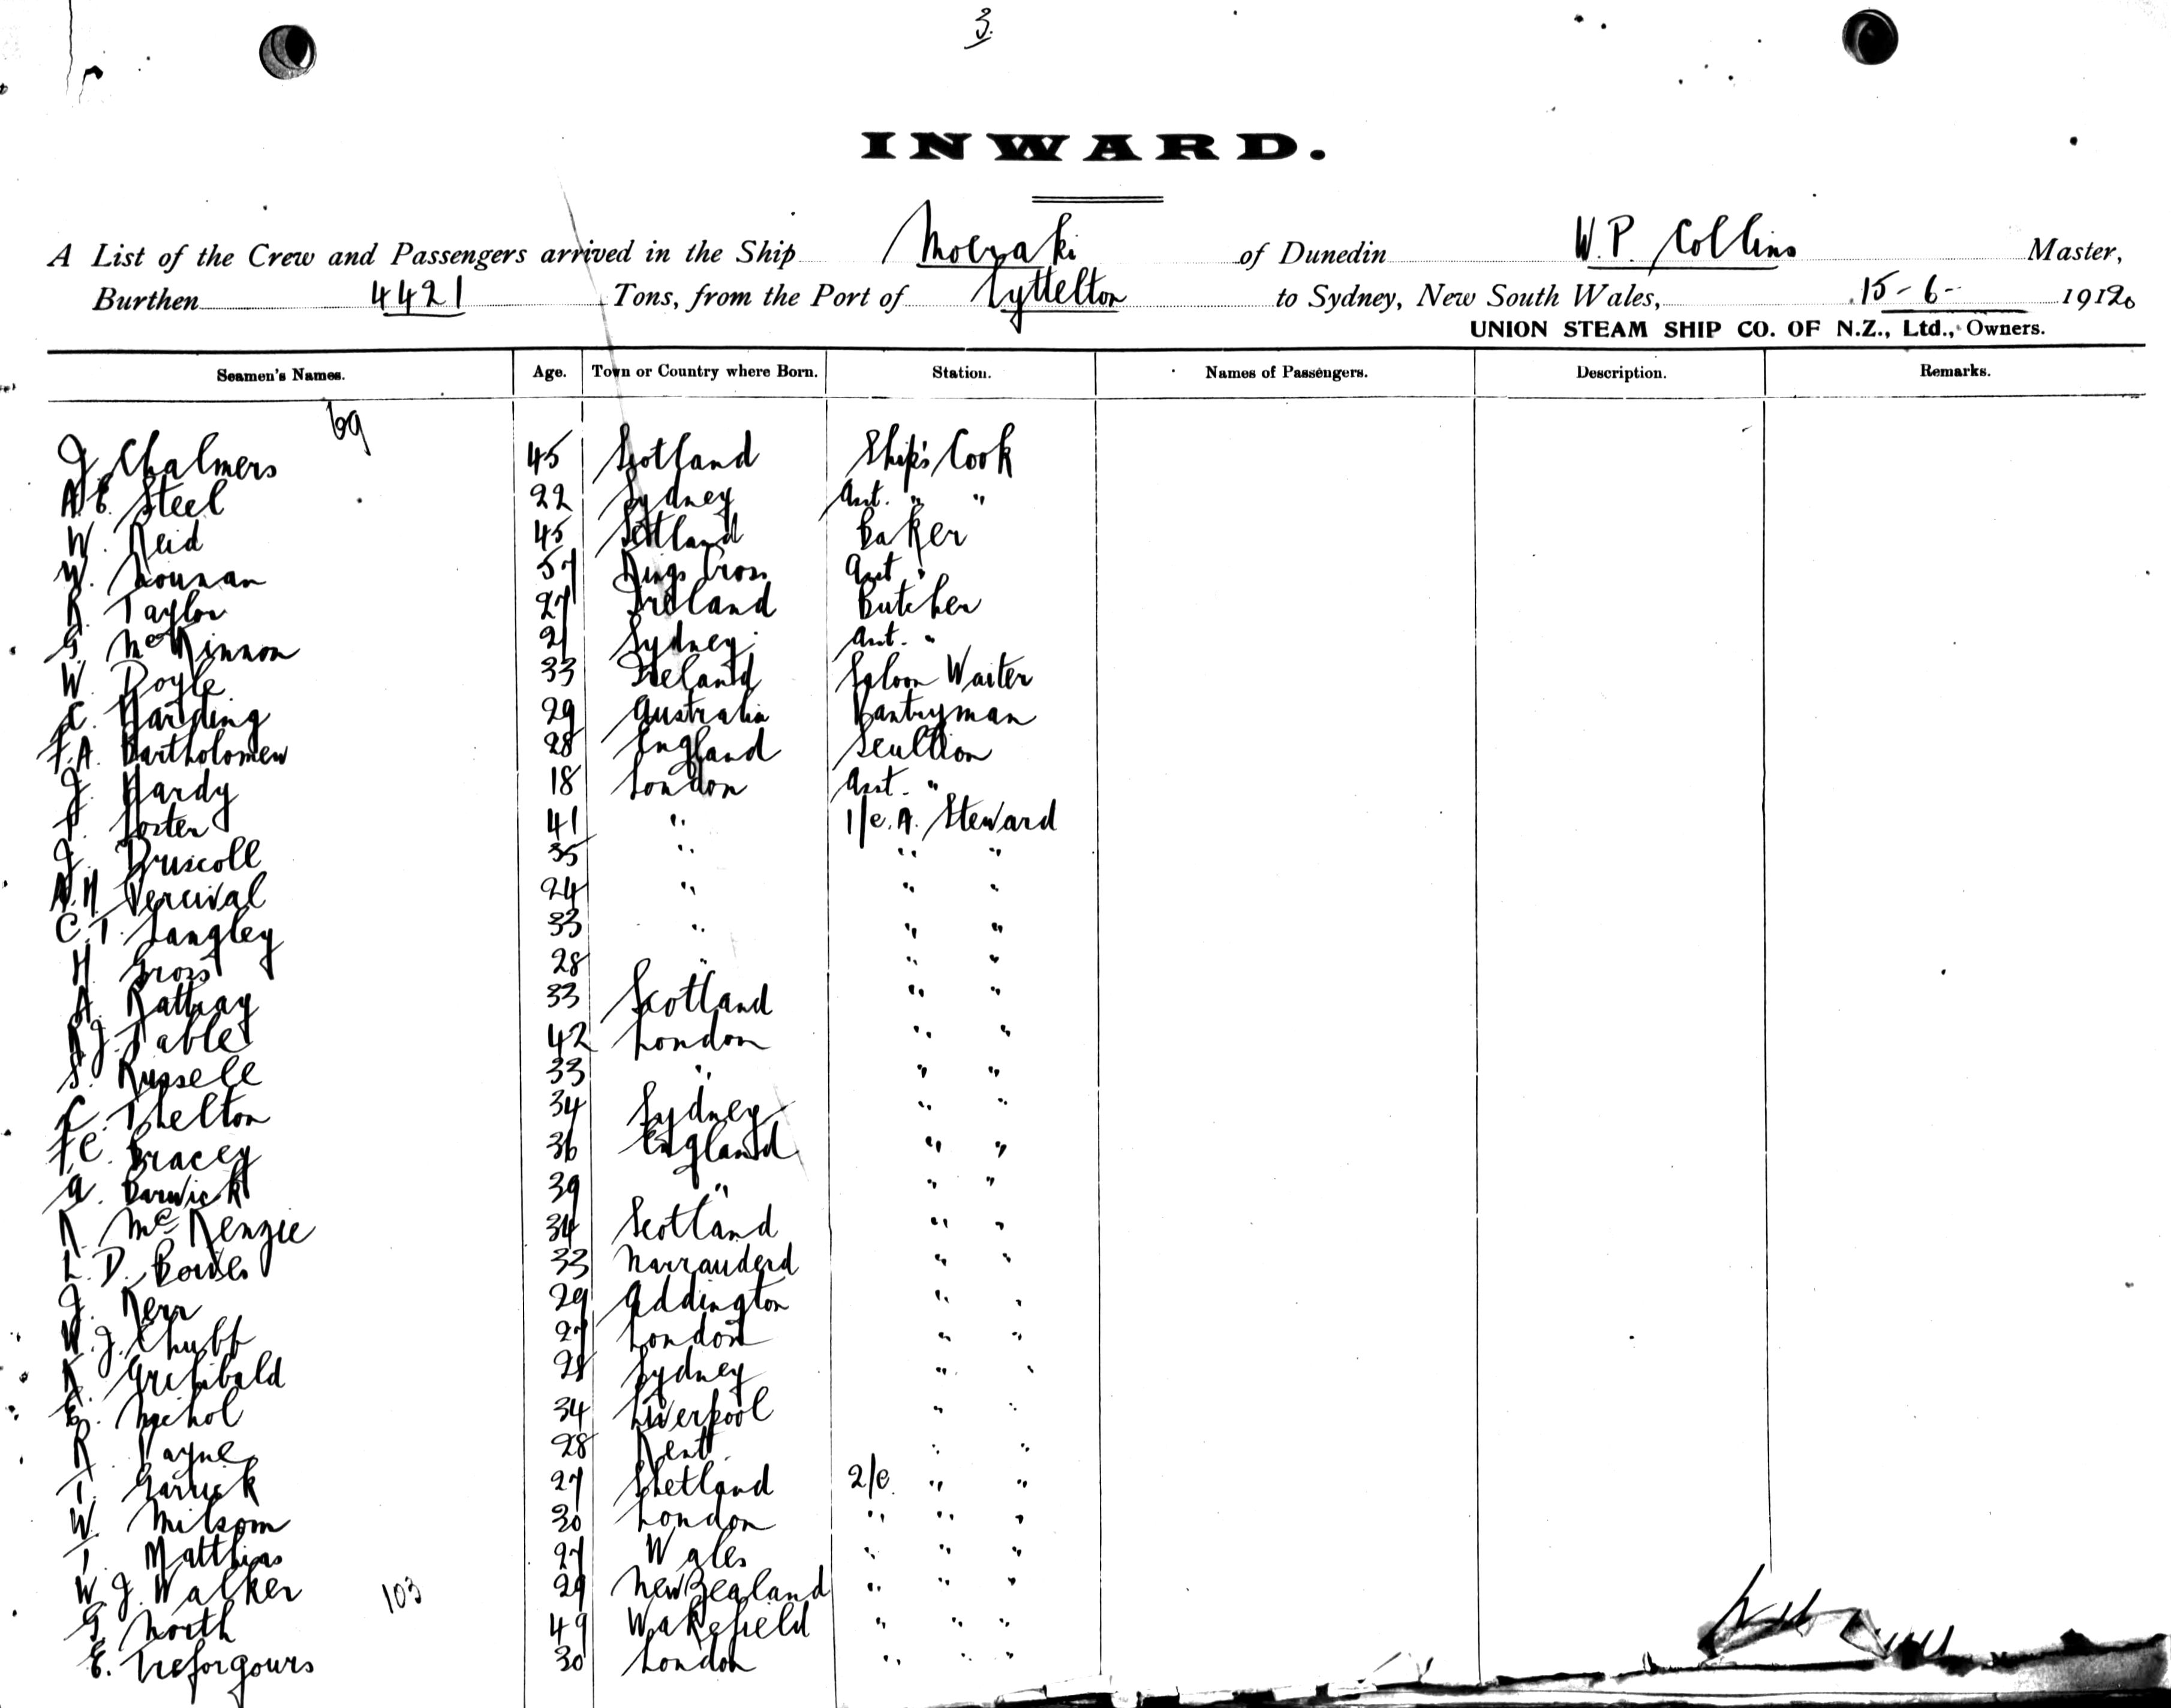 3.
INWARD.
A List of the Crew and Passengers arrived in the Ship Moeraki of Dunedin W. P. Collins Master,
Burthen 4421 Tons, from the Port of Lyttelton to Sydney, New South Wales, 15-6- 1912
UNION STEAM SHIP CO. OF N.Z., Ltd., Owners.
Seamen's Names. Age. Town or Country where Born. Station. Names of Passengers. Description. Remarks.
69
J Chalmers 45 Scotland Ship's Cook
A E Steel 22 Sydney Asst. " "
W. Reid 45 Scotland Baker
W. 57 Kings Cross Asst "
R Taylor 27 Ireland Butcher
G McKinnon 21 Sydney Asst. "
W. Doyle 33 Ireland Saloon Waiter
C. Harding 29 Australia Pantryman
F.A. Bartholomew 28 England Scullion
J. Hardy 18 London Asst. "
F. Foster 41 " 1/c. A. Steward
J. Driscoll 35 " " "
A.H. Percival 24 " " "
C.T. Langley 33 " " "
H Gross 28 " " "
A. Rattray 33 Scotland " "
R J Table 42 London " "
S. Russell 33 " " "
C. Thelton 34 Sydney " "
F C. Bracey 36 England " "
A. Barwick 39 " " "
R McKenzie 34 Scotland " "
L. D. Bowles 33 Narranderd " "
J. Kerr 29 Addington " "
W. J. Chubb 27 London " "
R Archibald 28 Sydney " "
E. Nichol 34 Liverpool " "
R Payne 28 Kent " "
T. Garrick 27 Shetland 2/c. " "
W. Milsom 30 London " " "
T. Matthias 27 Wales " " "
W. J. Walker 103 29 New Zealand " " "
G North 49 Wakefield " " "
E. Treforgours 30 London " " "